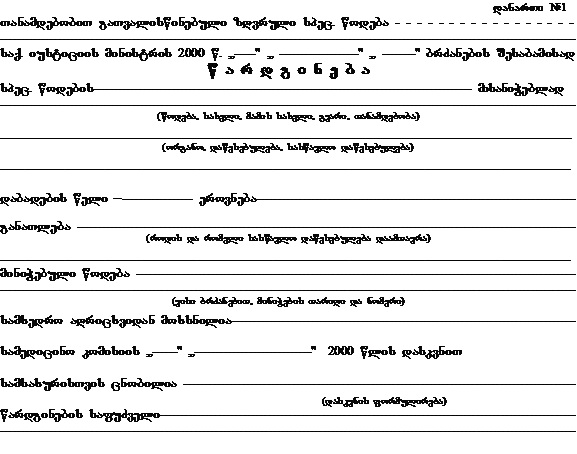 დანართი №1
თანამდებობით გათვალისწინებული ზღვრული სპეც. წოდება – – – – – – – – – – – – – – – –
საქ. იუსტიციის მინისტრის 2000 წ. „——" „ ————————" „ ———" ბრძანების შესაბამისად
წ ა რ დ გ ი ნ ე ბ ა
სპეც. წოდების———————————————— მისანიჭებლად
(წოდება, სახელი, მამის სახელი, გვარი, თანამდებობა)
(ორგანო, დაწესებულება, სასწავლო დაწესებულება)
დაბადების წელი ———————— ეროვნება————————————————
განათლება ————————————————
(როდის და რომელი სასწავლო დაწესებულება დაამთავრა)
მინიჭებული წოდება ————————————————
(ვისი ბრძანებით, მინიჭების თარიღი და ნომერი)
სამხედრო აღრიცხვიდან მოხსნილია————————————————
სამედიცინო კომისიის „——" „————————" 2000 წლის დასკვნით
სამსახურისთვის ცნობილია ————————————————
(დასკვნის ფორმულირება)
წარდგინების საფუძველი————————————————